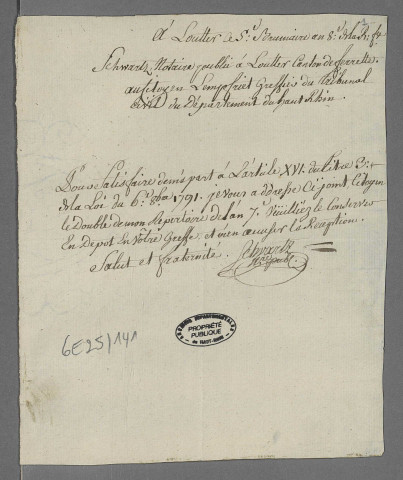 À Loutter le 5.e Brumaire an 8.e de la R. f.
Schwartz, Notaire publié à Loutter Canton de ferrette.
au Citoyen Lempfrit Greffier du Tribunal
Civil du Département du haut Rhin.
Pour Satisfaire de mis part à L'article XVI. du titre 3.e
de la Loi du 6. 8bre 1791. je vous adresse Ci joint, Citoyen
le Double de mon Répertoire de L'an 7.e Veuilliez le Conserver
En Depot En Votre Greffe, et m'en accuser la Reception.
Salut et fraternité.
Schwartz
Not. publ.
ARCHIVES DÉPARTEMENTALES
PROPRIÉTÉ
PUBLIQUE
du HAUT-RHIN
6E25/141